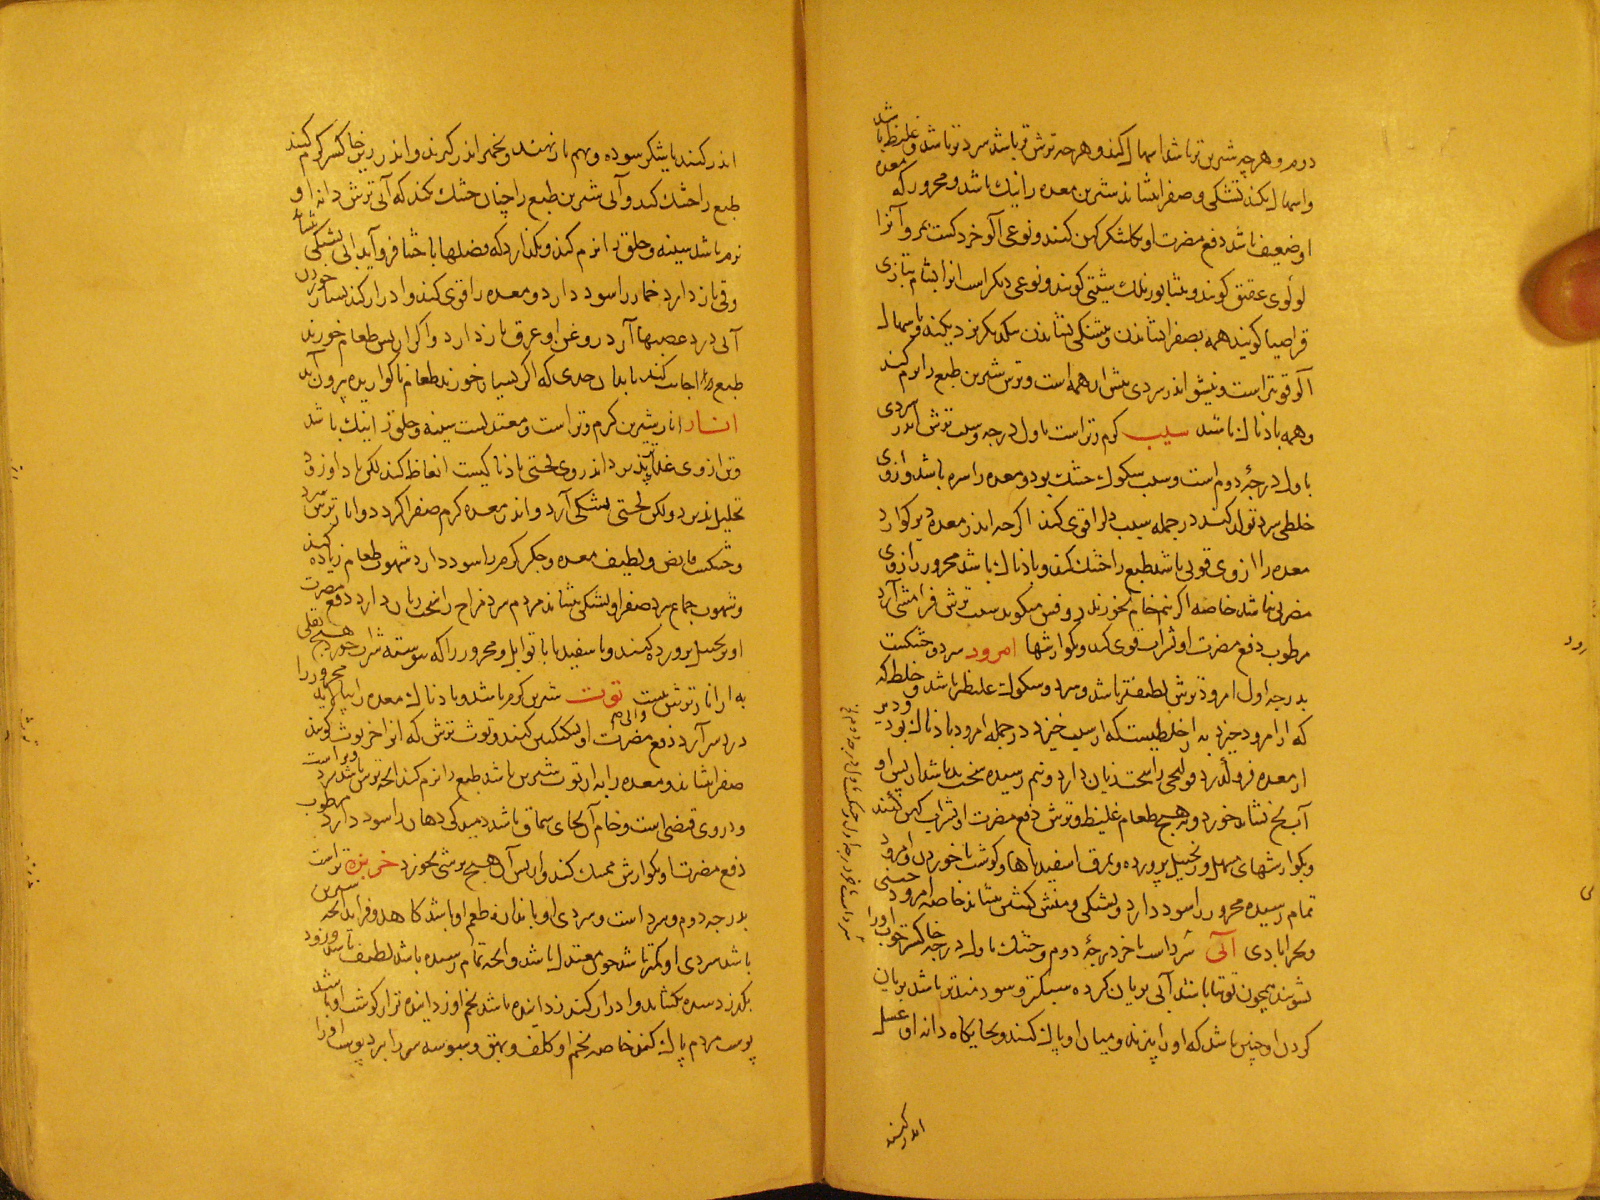 درم و هرچه شیرین تر باشد اسهال کند و هرچه ترش تر باشد سردتر باشد و غلیظ باشد
و اسهال نکند تشنگی و صفرا بنشاند شیرین معده را نیک باشد و محرور که معده
او ضعیف باشد دفع مضرت او بکلشکر کهن کنند و نوعی آلو خردکست بمرو آنرا
لولوی عقیق گویند و بنشابور نلک بیشتی گویند و نوعی دیگر است انرا بشام بتازی
قراصیا گویند همه بصفرا بنشاندن و تشنگی بنشاندن
آلو قویتر است و نیشو اندر سردی بیش از همه است و ترش شیرین طبع را نرم کند
و همه با دناک باشد سیب گرم و تر است باول درجه و سیب ترش اندر سردی
باول درجهٔ دوم است و سیب سکوک خشک بود و معده را سره باشد و از وی
خلطی سرد تولد کند در جمله سیب دلرا قوی کند اگرچه اندر معده دیر گوارد
معده را از وی قوتی باشد طبع را خشک کند و بادناک باشد محرور را از وی
مضرتی نباشد خاصه اگر نیم خام نخورند روفس میگوید سیب ترش فرامشی آرد
مرطوب دفع مضرت او بشراب قوی کند و بگوارشها امرود سرد و خشکست
بدرجه اول امرود ترش لطیفتر باشد و سرد و سکوک غلیظ باشد و خلط که
که از امرود خیزد به از خلطیست که از سیب خیزد در جمله امرود بادناک بود و دیر
از معده فرو گذرد قولنجی را سخت زیان دارد و نیم رسیده سخت بد باشد از پس او
آب یخ نشاید خورد و نه هیچ طعام غلیظ و ترش دفع مضرت او بشراب کهن کنند
و بگوارشهای مسهل و زنجبیل پرورده و بمرق اسفیدباها و گوشت ناخوردن و امرود
تمام رسیده محرور را سود دارد و تشنگی و منش گشتن بنشاند خاصه امرود چینی
آبی سرد است باخر درجهٔ دوم و خشک باول درجه خاکستر چوب او را
بشویند همچون توتیا باشد آبی بریان کرده سبکتر و سودمندتر باشد بریان
کردن او چنین باشد که او را بپزند و میان او پاک کنند و بجایگاه دانه او عسل
اندر کنند
اندر کنند یا شکر سوده و بهم باز نهند و بخمیر اندر گیرند و اندر زیر خاکستر گرم کنند
طبع را خشک کند و آبی شیرین طبع را چنان خشک نکند که آبی ترش دانهٔ او
نرم باشد سینه و حلق را نرم کند و بگذارد که فضلها باحشا فرو آید آبی تشنگی بنشاند
و قی باز دارد خمار را سود دارد و معده را قوی کند و ادرار کند بسیار خوردن
آبی درد عصبها آرد روغن او عرق باز دارد و اگر از پس طعام خورند
طبع را اجابت کند تا بدان حدی که اگر بسیار خورند طعام ناگواریده بیرون آید
انار انار شیرین گرم و تر است و معتدلست سینه و حلق را نیک باشد
و تن از وی غذا پذیرد اندر وی لختی بادناکیست انعاظ کند لکن باد او زود
تحلیل پذیرد و لکن لختی تشنگی آرد و اندر معده گرم صفرا گردد و انار ترش سرد
و خشکست قابض و لطیف معده و جگر گرم را سود دارد شهوت طعام زیاده کند
و شهوت جماع ببرد صفرا و تشنگی بنشاند مردم سرد مزاج را سخت زیان دارد دفع مضرت
او بزنجبیل پرورده کنند و باسفیدبا با توابل و محرور را که پیوسته شراب خورد هیچ نقلی
به از انار ترش نیست توت شیرین گرم باشد و بادناک معده را تباه کند محرور را
درد سر آرد دفع مضرت او بسکنگبین کنند و توت ترش که انرا خرتوت گویند
صفرا بنشاند و معده را به از توت شیرین باشد طبع را نرم کند آنچه ترش باشد سرد و تر است
و در وی قبضی است و خام آن بجای سماق باشد دمیدگی دهان را سود دارد مرطوب
دفع مضرت او بگوارش ممسک کند و از پس آن هیچ ترشی نخورد خربزه تر است
بدرجه دوم و سرد است و سردی او باندازه طعم او باشد کاهد و فزاید آنچه شیرین
باشد سردی او کمتر باشد چون معتدل باشد و آنچه تمام رسیده باشد لطیف باشد و زود
بگذرد سده بگشاید و ادرار کند زداینده باشد تخم او زداینده تر از گوشت او باشد
پوست مردم پاک کند خاصه تخم او کلف و بهق و سبوسه سر را ببرد پوست او را